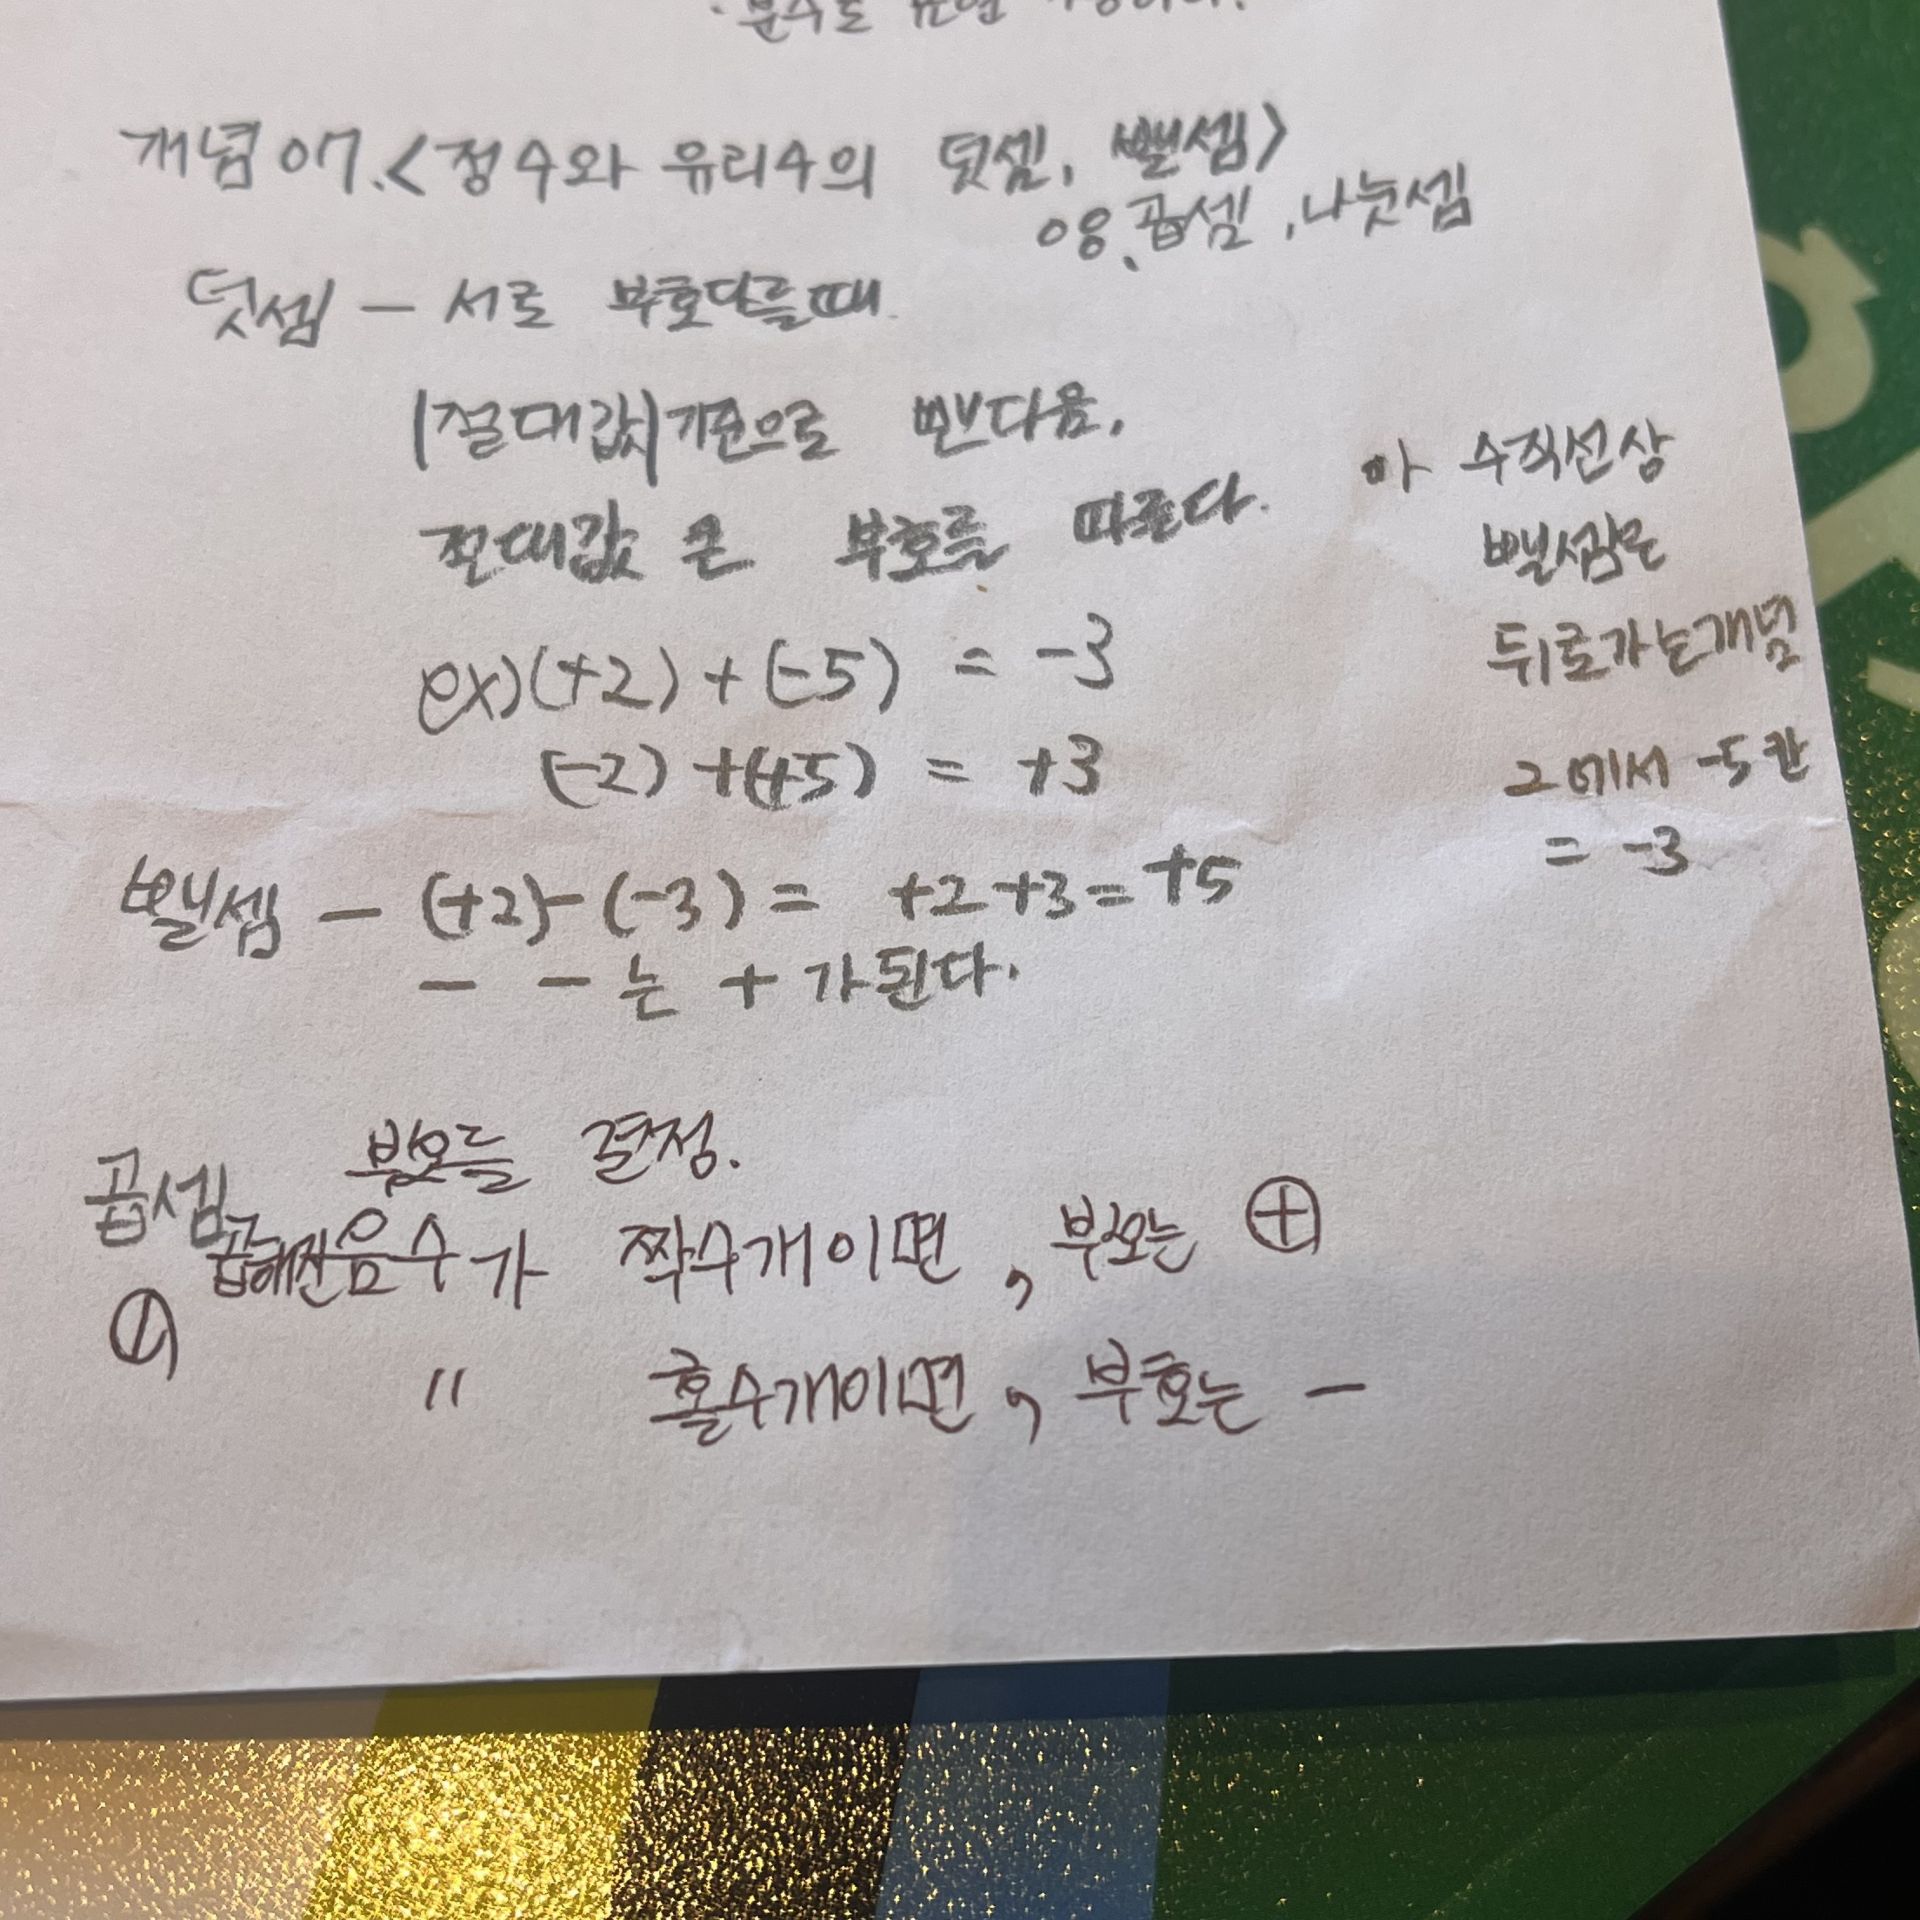 개념 07.<정수와 유리수의 덧셈, 뺄셈>
08. 곱셈, 나눗셈
덧셈 - 서로 부호다를때.
|절대값|기준으로 뺀다음,
절대값 큰 부호를 따른다.
ex)(+2)+(-5) = -3
(-2)+(+5) = +3
아 수직선상
뺄셈은
뒤로가는개념
2에서 -5칸
= -3
뺄셈 - (+2)-(-3)= +2+3=+5
- - 는 + 가된다.
곱셈 부호를 결정.
곱해진음수가 짝수개이면, 부호는 ⊕
" 홀수개이면, 부호는 -